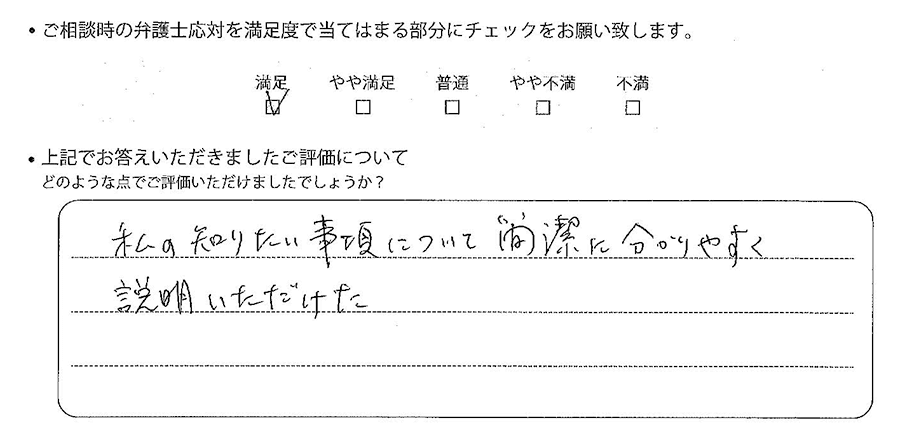 ・ご相談時の弁護士応対を満足度で当てはまる部分にチェックをお願い致します。
満足 やや満足 普通 やや不満 不満
・上記でお答えいただきましたご評価について
どのような点でご評価いただけましたでしょうか？
私の知りたい事項について簡潔に分かりやすく
説明いただけた